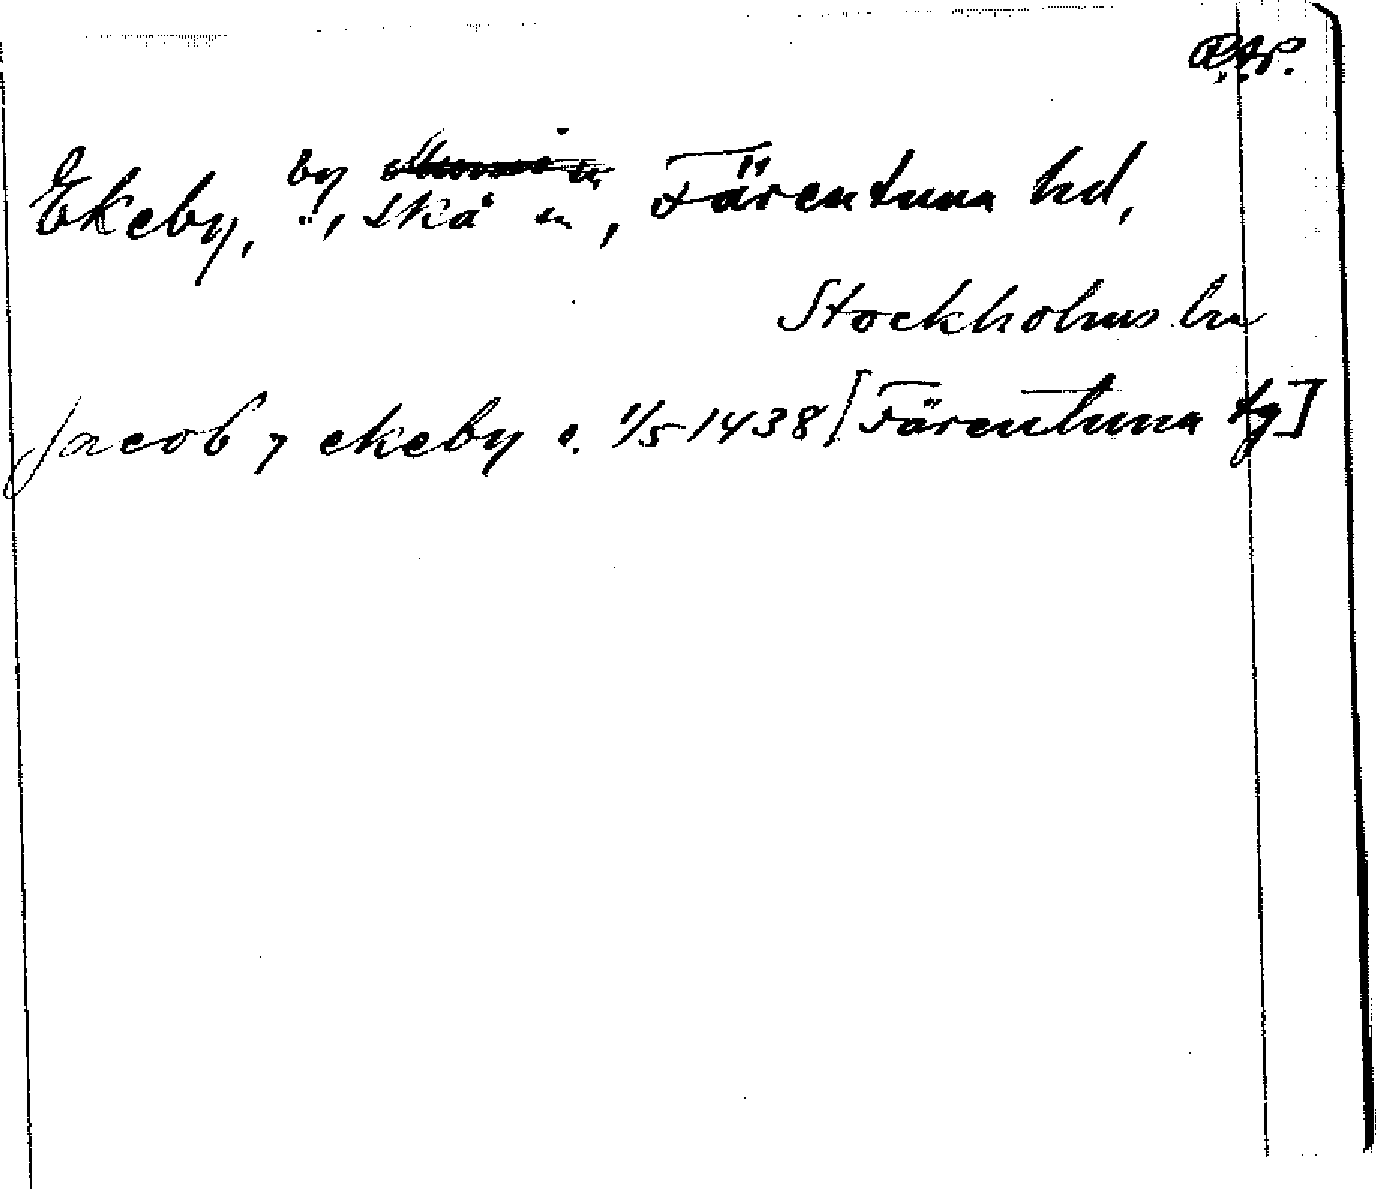 Ekeby, by, Skå sn, Färentuna hd,
Stockholms län
Jacob y ekeby c. 1/5 1438 [Färentuna tg]